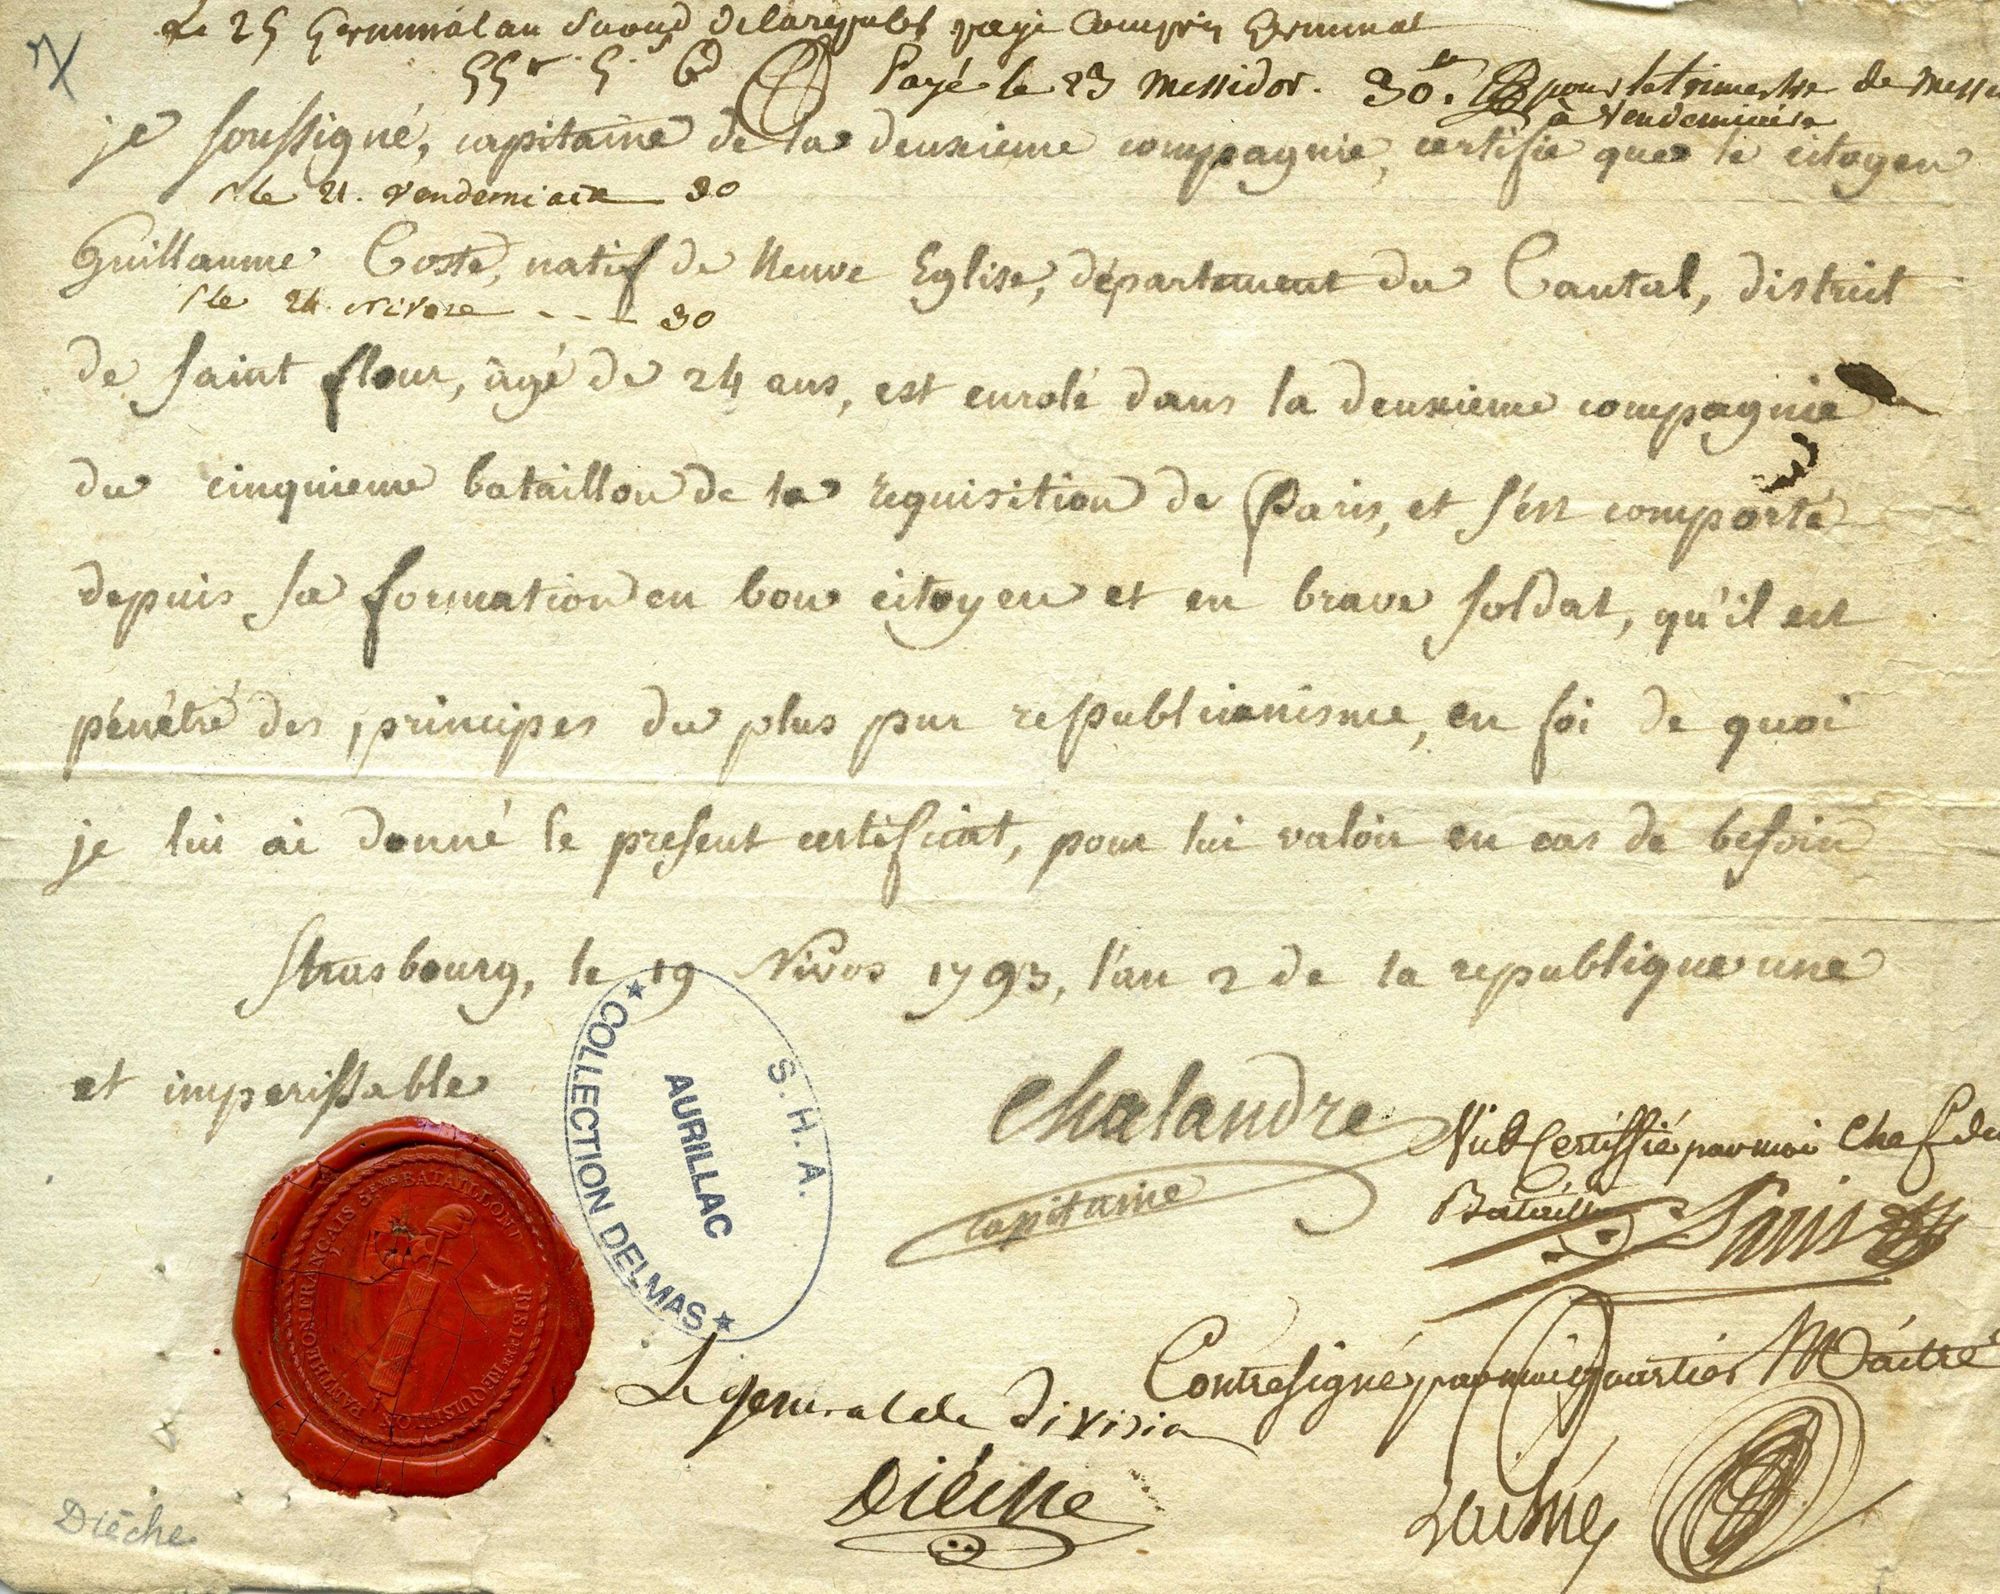 Le 25 Germinal an Second de la republ paye compris Germinal
55tt. 5s 6d Payé le 23 Messidor. 30tt. pour le trimestre de Messi
à Vendemiaire
je soussigné, capitaine de la deuxieme compagnie, certifie que le citoyen
le 21. vendemiaire 30
Guillaume Coste, natif de Neuve Eglise, département du Cantal, district
le 24. Nivose - - - 30
de saint flour, âgé de 24 ans, est enrolé dans la deuxieme compagnie
du cinquieme bataillon de la requisition de Paris, et s'est comporté
depuis sa formation en bon citoyen et en brave soldat, qu'il est
pénétré des principes du plus pur republicanisme, en foi de quoi
je lui ai donné le present certificat, pour lui valoir en cas de besoin
Strasbourg, le 19 Nivos 1793, l'an 2 de la republique une
et imperissable
Chalandre
capitaine
Vu & Certiffié par moi Chef du
Bataillon Paris
S.H.A.
AURILLAC
★ COLLECTION DELMAS ★
PANTHEON FRANÇAIS 5EME BATAILLON
RIS 1ERE REQUISITION
Contresigné par moi quartier Maitre
Le general de division
Diéche
Diéche